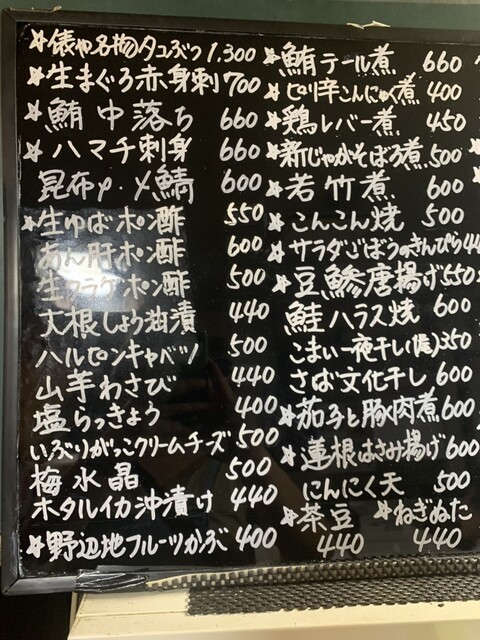 ☆俵や名物タコぶつ 1,300
☆生まぐろ赤身刺 700
☆鮪中落ち 660
☆ハマチ刺身 660
昆布〆・〆鯖 600
☆生ゆばポン酢 550
あん肝ポン酢 600
生クラゲポン酢 500
大根しょう油漬 440
ハルピンキャベツ 500
山芋わさび 440
塩らっきょう 400
いぶりがっこクリームチーズ 500
梅水晶 500
ホタルイカ沖漬け 440
☆野辺地フルーツかぶ 400
☆鮪テール煮 660
☆ピリ辛こんにゃく煮 400
☆鶏レバー煮 450
☆新じゃがそぼろ煮 500
☆若竹煮 600
☆こんこん焼 500
☆サラダごぼうのきんぴら 44
☆豆鯵唐揚げ 550
鮭ハラス焼 600
こまい一夜干し 350
さば文化干し 600
☆茄子と豚肉煮 600
☆蓮根はさみ揚げ 600
にんにく天 500
☆茶豆 ☆ねぎぬた
440 440